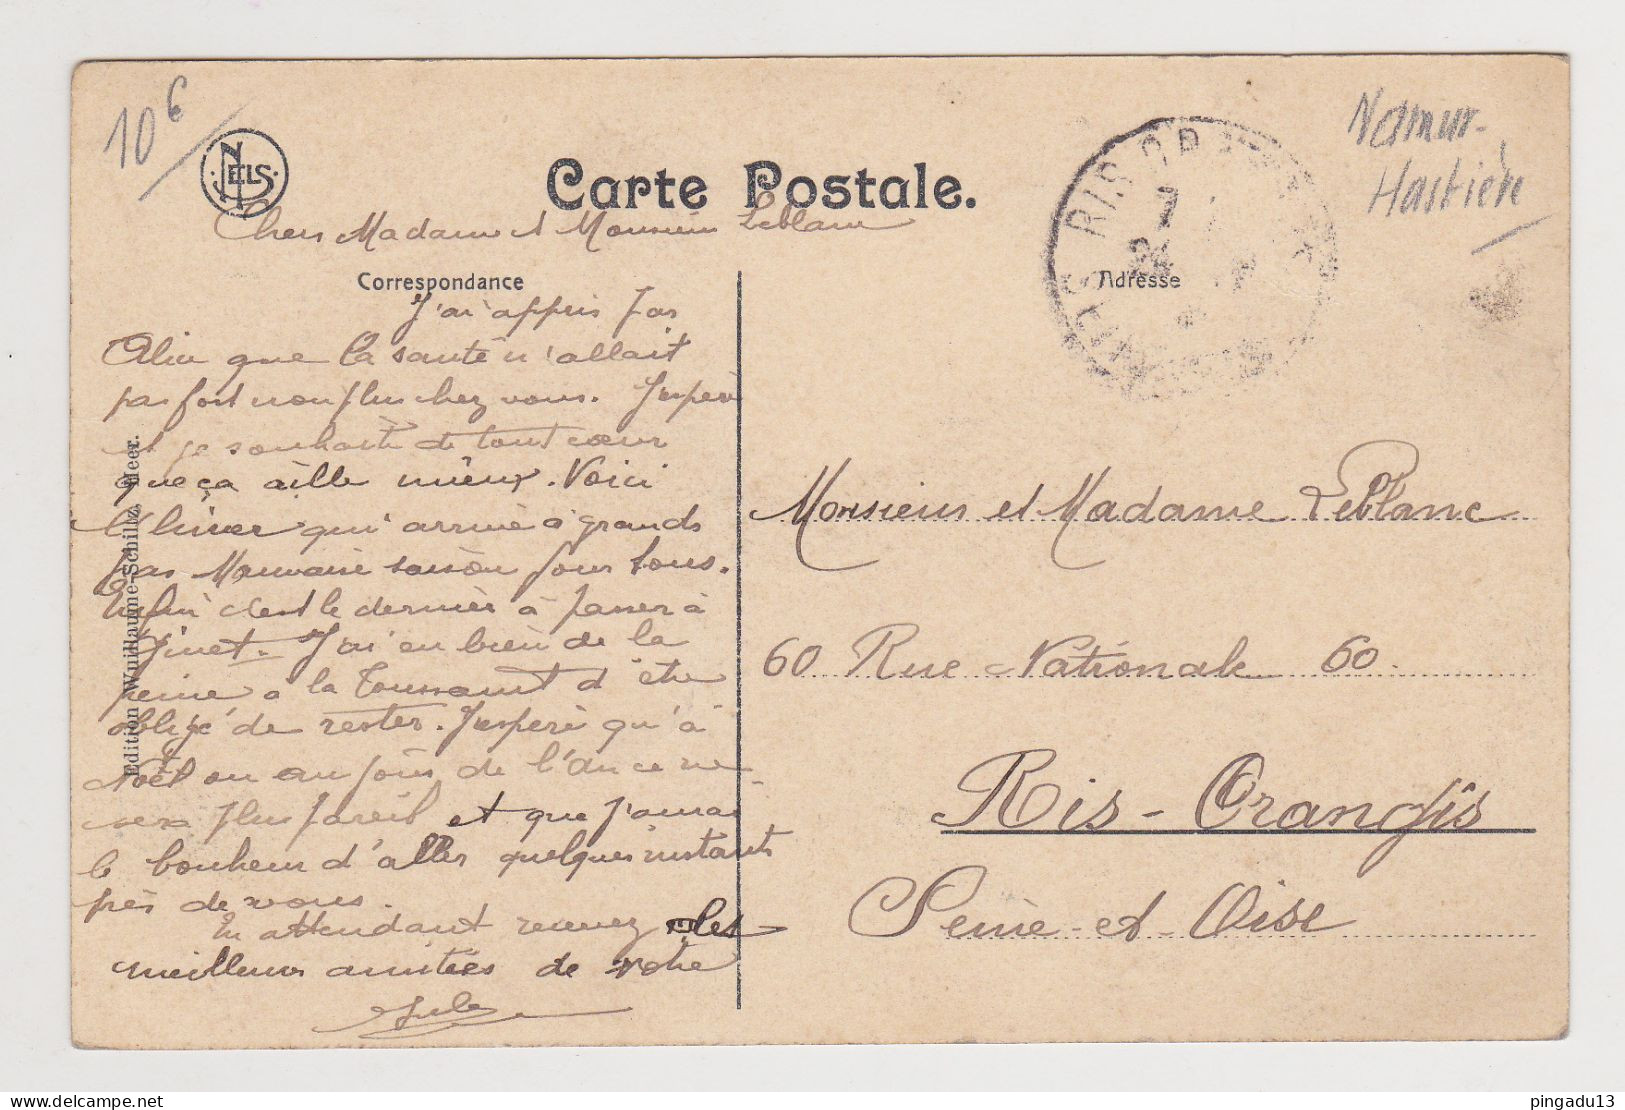 10€
NELS
Carte Postale.
Namur-
Hastière
RIS OR
7
Chers Madame et Monsieur Leblanc
Correspondance
Adresse
J'ai appris par
Alice que la santé n'allait
pas fort non plus chez vous. J'espère
et je souhaite de tout cœur
que ça aille mieux. Voici
l'hiver qui arrive à grands
pas Mauvaise saison pour tous.
Enfin c'est le dernier à passer à
Ginet. J'ai eu bien de la
peine à la Toussaint d'être
obligé de rester. J'espère qu'à
Noël ou au jour de l'an ce ne
sera plus pareil et que j'aurai
le bonheur d'aller quelques instants
près de vous.
En attendant recevez les
meilleures amitiés de votre
Jules
Edition Wuillaume-Schiltz, Heer.
Monsieur et Madame Leblanc
60 Rue Nationale 60
Ris-Orangis
Seine-et-Oise
delcampe.net
pingadu13